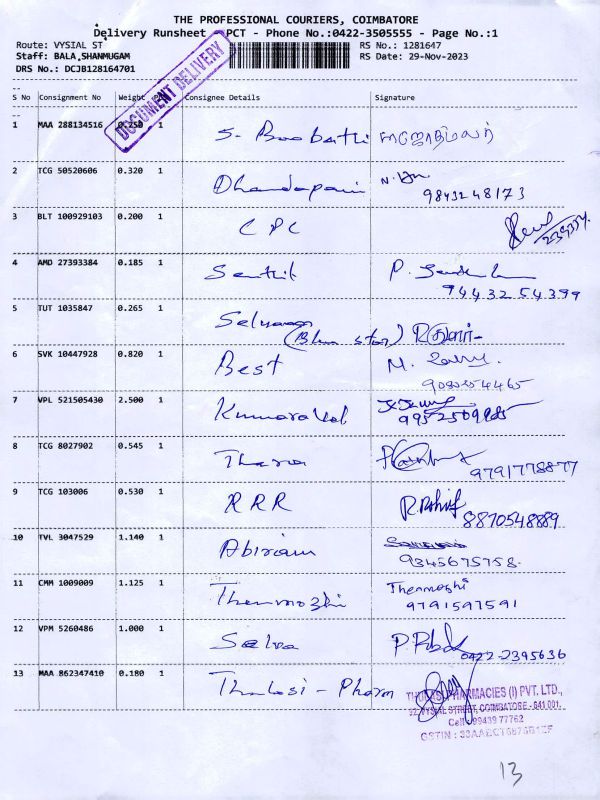 THE PROFESSIONAL COURIERS, COIMBATORE
Delivery Runsheet - PCT - Phone No.:0422-3505555 - Page No.:1
Route: VYSIAL ST RS No.: 1281647
Staff: BALA,SHANMUGAM RS Date: 29-Nov-2023
DRS No.: DCJB128164701
DOCUMENT DELIVERY
S No Consignment No Weight Consignee Details Signature
1 MAA 288134516 0.250 1 S- Boobathi
2 TCG 50520606 0.320 1 Dhandapani
9843248173
3 BLT 100929103 0.200 1 CPC
4 AMD 27393384 0.185 1 Senthil P.
94432 54399
5 TUT 1035847 0.265 1 Selvam
(Blue star)
6 SVK 10447928 0.820 1 Best M.
7 VPL 521505430 2.500 1 Kumaravel
8 TCG 8027902 0.545 1 Thara
9791778877
9 TCG 103006 0.530 1 RRR R.Rohit
8870548889
10 TVL 3047529 1.140 1 Abiram
9345675758
11 CMM 1009009 1.125 1 Thenmozhi Thenmozhi
9791597591
12 VPM 5260486 1.000 1 Selva
0422-2395636
13 MAA 862347410 0.180 1 Thulasi - Pharm
THULASI PHARMACIES (I) PVT. LTD.,
92, VYSIAL STREET, COIMBATORE - 641 001.
Cell : 99439 77762
GSTIN :
13